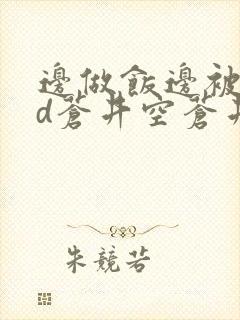 邊做飯邊被
d蒼井空蒼井
朱競若